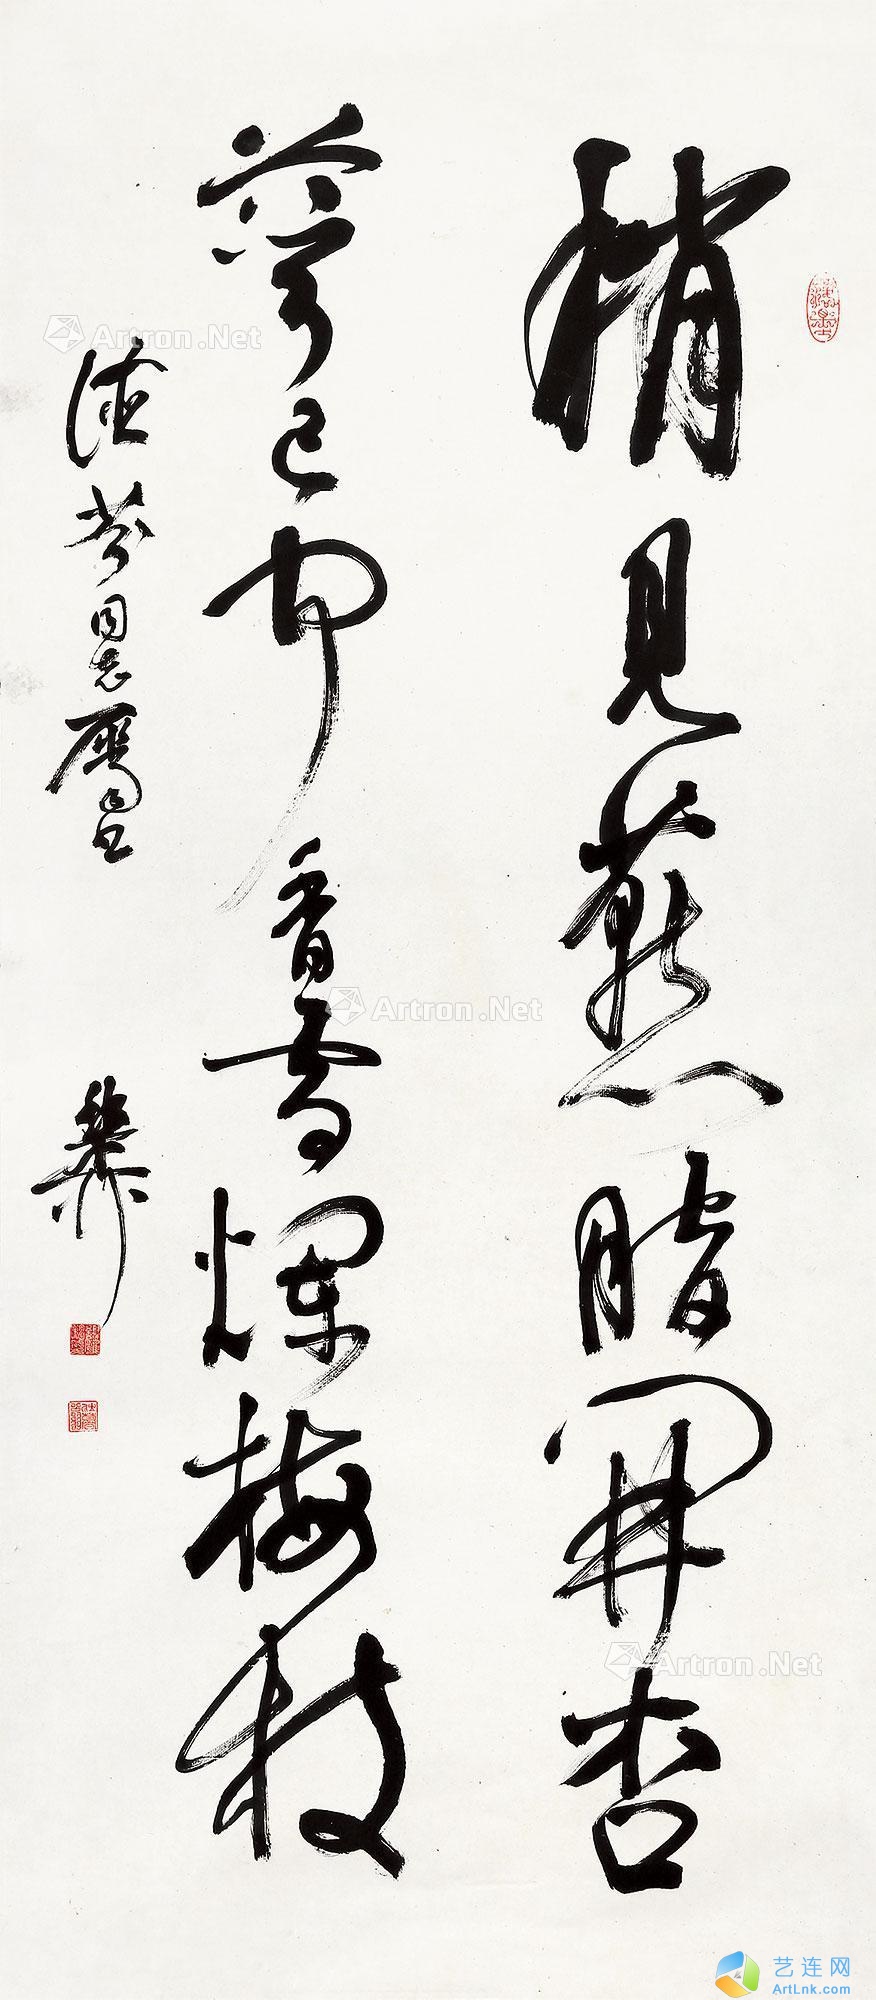 稍見燕脂開杏
萼已聞香雪爛梅枝
德芬同志屬書
謝
Artron.Net
Artron.Net
Artron.Net
艺连网
ArtLnk.com